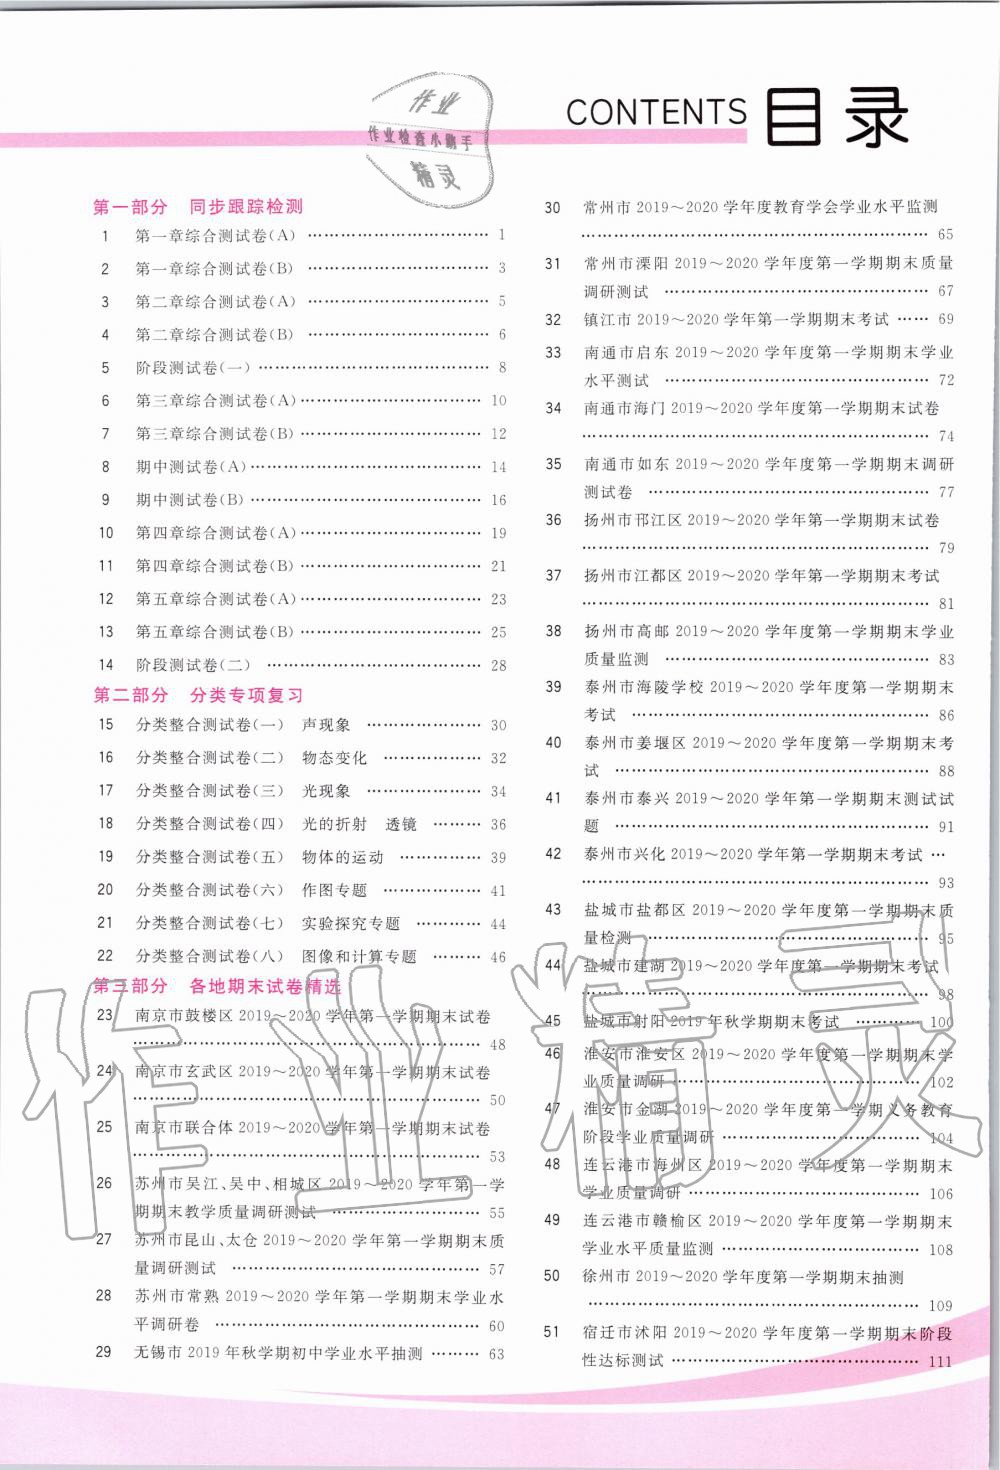 CONTENTS 目录
作业
作业检查小助手
精灵
第一部分 同步跟踪检测
1 第一章综合测试卷(A) …… 1
2 第一章综合测试卷(B) …… 3
3 第二章综合测试卷(A) …… 5
4 第二章综合测试卷(B) …… 6
5 阶段测试卷(一) …… 8
6 第三章综合测试卷(A) …… 10
7 第三章综合测试卷(B) …… 12
8 期中测试卷(A) …… 14
9 期中测试卷(B) …… 16
10 第四章综合测试卷(A) …… 19
11 第四章综合测试卷(B) …… 21
12 第五章综合测试卷(A) …… 23
13 第五章综合测试卷(B) …… 25
14 阶段测试卷(二) …… 28
第二部分 分类专项复习
15 分类整合测试卷(一) 声现象 …… 30
16 分类整合测试卷(二) 物态变化 …… 32
17 分类整合测试卷(三) 光现象 …… 34
18 分类整合测试卷(四) 光的折射 透镜 …… 36
19 分类整合测试卷(五) 物体的运动 …… 39
20 分类整合测试卷(六) 作图专题 …… 41
21 分类整合测试卷(七) 实验探究专题 …… 44
22 分类整合测试卷(八) 图像和计算专题 …… 46
第三部分 各地期末试卷精选
23 南京市鼓楼区 2019～2020 学年第一学期期末试卷
…… 48
24 南京市玄武区 2019～2020 学年第一学期期末试卷
…… 50
25 南京市联合体 2019～2020 学年第一学期期末试卷
…… 53
26 苏州市吴江、吴中、相城区 2019～2020 学年第一学
期期末教学质量调研测试 …… 55
27 苏州市昆山、太仓 2019～2020 学年第一学期期末质
量调研测试 …… 57
28 苏州市常熟 2019～2020 学年第一学期期末学业水
平调研卷 …… 60
29 无锡市 2019 年秋学期初中学业水平抽测 …… 63
30 常州市 2019～2020 学年度教育学会学业水平监测
…… 65
31 常州市溧阳 2019～2020 学年度第一学期期末质量
调研测试 …… 67
32 镇江市 2019～2020 学年第一学期期末考试 …… 69
33 南通市启东 2019～2020 学年度第一学期期末学业
水平测试 …… 72
34 南通市海门 2019～2020 学年度第一学期期末试卷
…… 74
35 南通市如东 2019～2020 学年度第一学期期末调研
测试卷 …… 77
36 扬州市邗江区 2019～2020 学年第一学期期末试卷
…… 79
37 扬州市江都区 2019～2020 学年第一学期期末考试
…… 81
38 扬州市高邮 2019～2020 学年度第一学期期末学业
质量监测 …… 83
39 泰州市海陵学校 2019～2020 学年度第一学期期末
考试 …… 86
40 泰州市姜堰区 2019～2020 学年度第一学期期末考
试 …… 88
41 泰州市泰兴 2019～2020 学年第一学期期末测试试
题 …… 91
42 泰州市兴化 2019～2020 学年第一学期期末考试 …
…… 93
43 盐城市盐都区 2019～2020 学年度第一学期期末质
量检测 …… 95
44 盐城市建湖 2019～2020 学年度第一学期期末考试
…… 98
45 盐城市射阳 2019 年秋学期期末考试 …… 100
46 淮安市淮安区 2019～2020 学年度第一学期期末学
业质量调研 …… 102
47 淮安市金湖 2019～2020 学年度第一学期义务教育
阶段学业质量调研 …… 104
48 连云港市海州区 2019～2020 学年度第一学期期末
学业质量调研 …… 106
49 连云港市赣榆区 2019～2020 学年度第一学期期末
学业水平质量监测 …… 108
50 徐州市 2019～2020 学年度第一学期期末抽测
…… 109
51 宿迁市沭阳 2019～2020 学年度第一学期期末阶段
性达标测试 …… 111
作业精灵